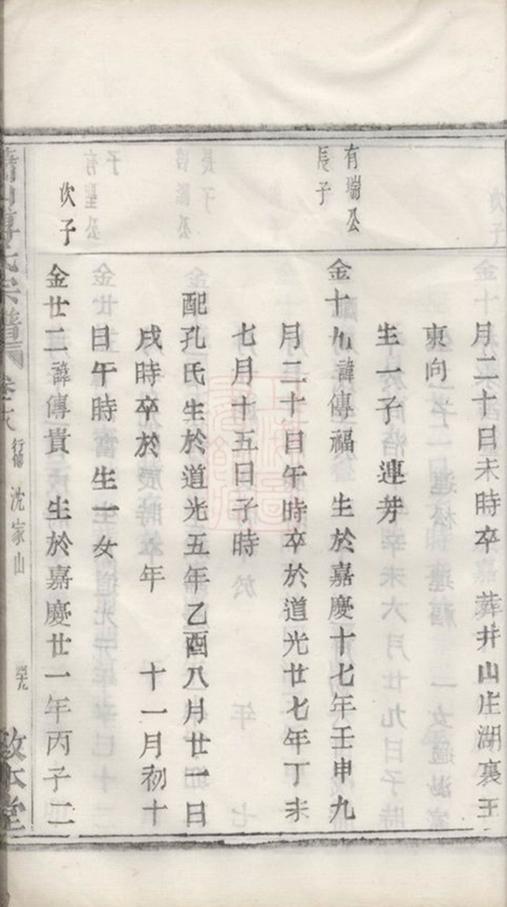 月二十日未時卒 葬井山庄湖裏王
東向
生一子連芳
有瑞公
長子
金十九諱傳福 生於嘉慶十七年壬申九
月二十日午時卒於道光廿七年丁未
七月十五日子時
配孔氏生於道光五年乙酉八月廿一日
戌時卒於 年 十一月初十
日午時生一女
次子
金廿二諱傳貴 生於嘉慶廿一年丙子二
氏宗譜 卷 行傳 沈家山 敦本堂